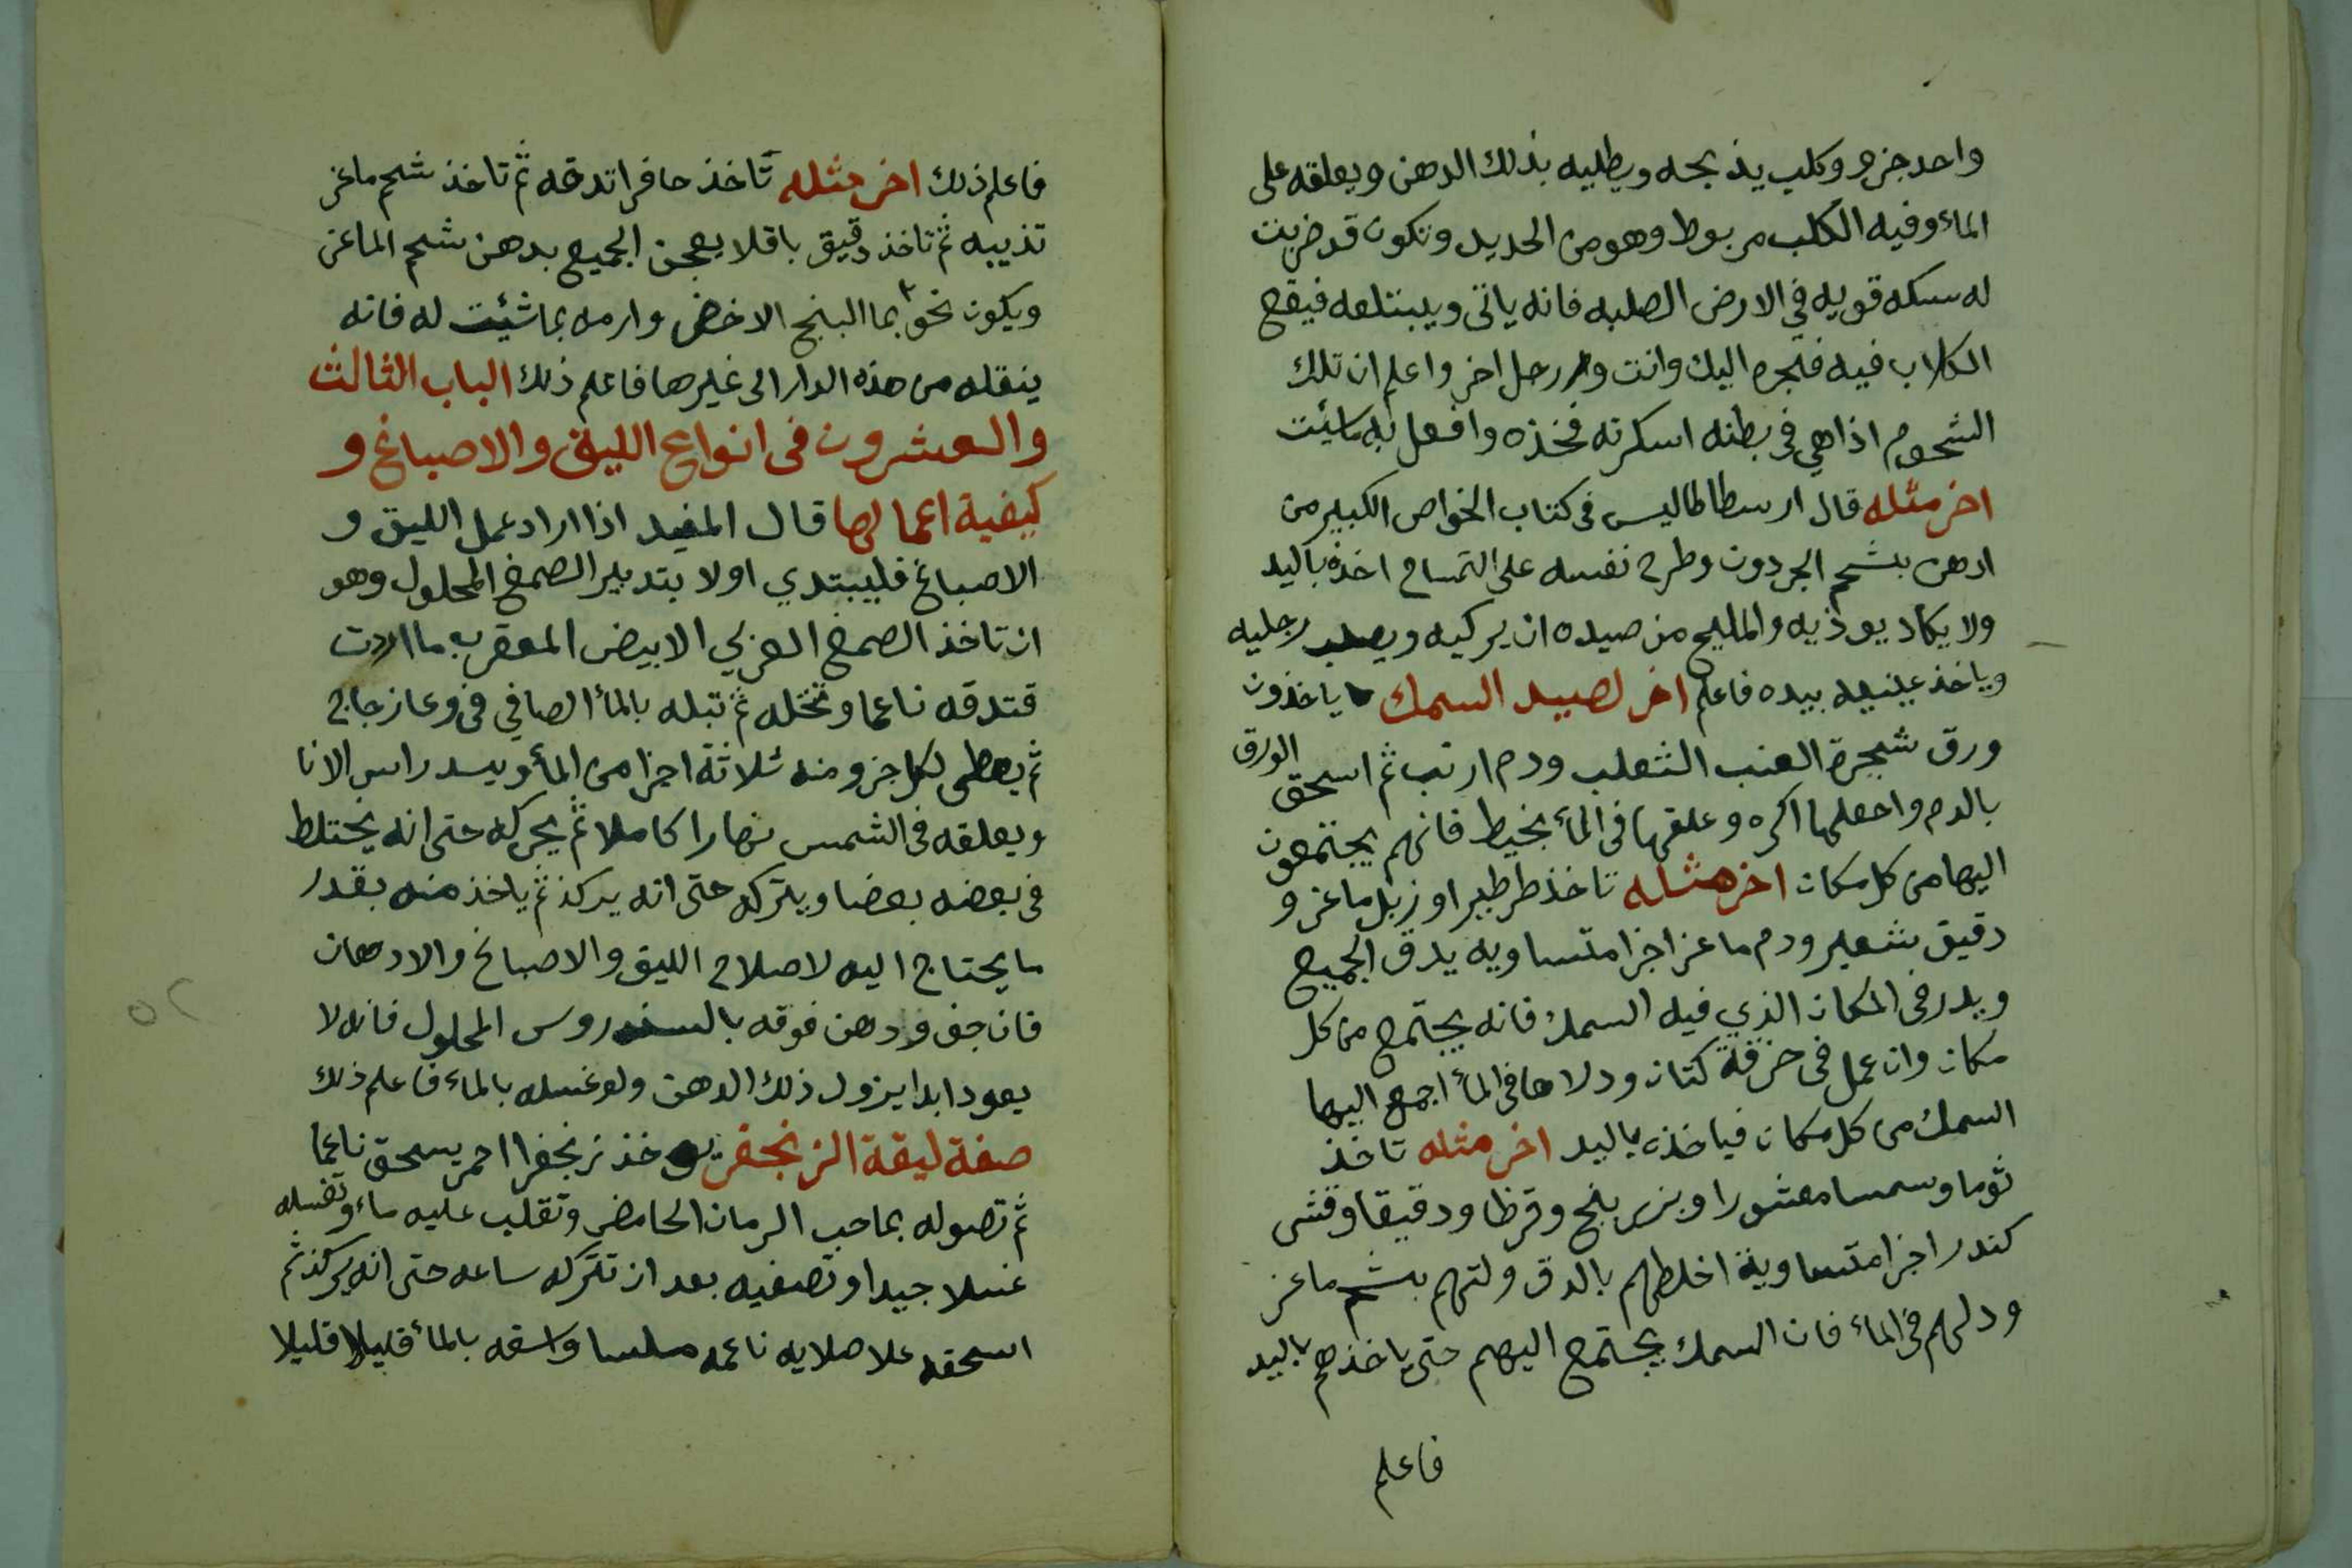 واحد جزو وكلب يذبحه ويطليه بذلك الدهن ويعلقه على
الماء وفيه الكلب مربوط وهو من الحديد وتكون قد ضربت
له سكه قويه في الارض الصلبه فانه ياتى ويبتلعه فيقع
الكلاب فيه فتجره اليك وانت ورجل اخر واعلم ان تلك
الشحوم اذا هي في بطنه اسكرته فخذه وافعل به ماشئت
اخر مثله قال ارسطاطاليس في كتاب الخواص الكبير من
ادهن بشحم الجردون وطرح نفسه على التمساح اخذه باليد
ولا يكاد يوذيه والمليح من صيده ان يركبه ويصلب رجليه
وياخذ عينيه بيده فاعلم اخر لصيد السمك ياخذون
ورق شجرة العنب الثعلب ودم ارنب ثم اسحق الورق
بالدم واجعلها اكره وعلقها في الماء بخيط فانهم يجتمعون
اليها من كل مكان اخر مثله تاخذ طرطير او زبل ماعز و
دقيق شعير ودم ماعز اجزا متساويه يدق الجميع
ويدر في المكان الذي فيه السمك فانه يجتمع من كل
مكان وان عمل في خرقة كتان ودلاها في الماء اجمع اليها
السمك من كل مكان فياخذه باليد اخر مثله تاخذ
ثوما وسمسا مقشورا وبزر بنج وقرظا ودقيقا وقشر
كندر اجزا متساوية اخلطهم بالدق ولتهم بشحم ماعز
ودليهم في الماء فان السمك يجتمع اليهم حتى ياخذهم باليد
فاعلم
فاعلم ذلك اخر مثله تاخذ حافرا تدقه ثم تاخذ شحم ماعز
تذيبه ثم تاخذ دقيق باقلا يعجن الجميع بدهن شحم الماعز
ويكون نحو بما البنج الاخضر وارمه بما شئت له فانه
ينقله من هذه الدار الى غيرها فاعلم ذلك الباب الثالث
والعشرون في انواع الليق والاصباغ و
كيفية اعمالها قال المفيد اذا اراد عمل الليق و
الاصباغ فليبتدي اولا بتدبير الصمغ المحلول وهو
ان تاخذ الصمغ العربي الابيض المعقرب ما اردت
فتدقه ناعما وتنخله ثم تبله بالماء الصافي في وعا زجاج
ثم يعطى لكل جزو منه ثلاثة اجزا من الماء ويسد راس الانا
ويعلقه في الشمس نهارا كاملا ثم يحركه حتى انه يختلط
في بعضه بعضا ويتركه حتى انه يركد ثم ياخذ منه بقدر
ما يحتاج اليه لاصلاح الليق والاصباغ والادهان
فان جف ودهن فوقه بالسندروس المحلول فانه لا
يعود ابدا يزول ذلك الدهن ولو غسله بالماء فاعلم ذلك
صفة ليقة الزنجفر يوخذ زنجفرا احمر يسحق ناعما
ثم تصوله بماحب الرمان الحامض وتقلب عليه ماء وتغسله
غسلا جيدا وتصفيه بعد ان تتركه ساعه حتى انه يركد ثم
اسحقه علا صلايه ناعمه ملسا واسقه بالماء قليلا قليلا